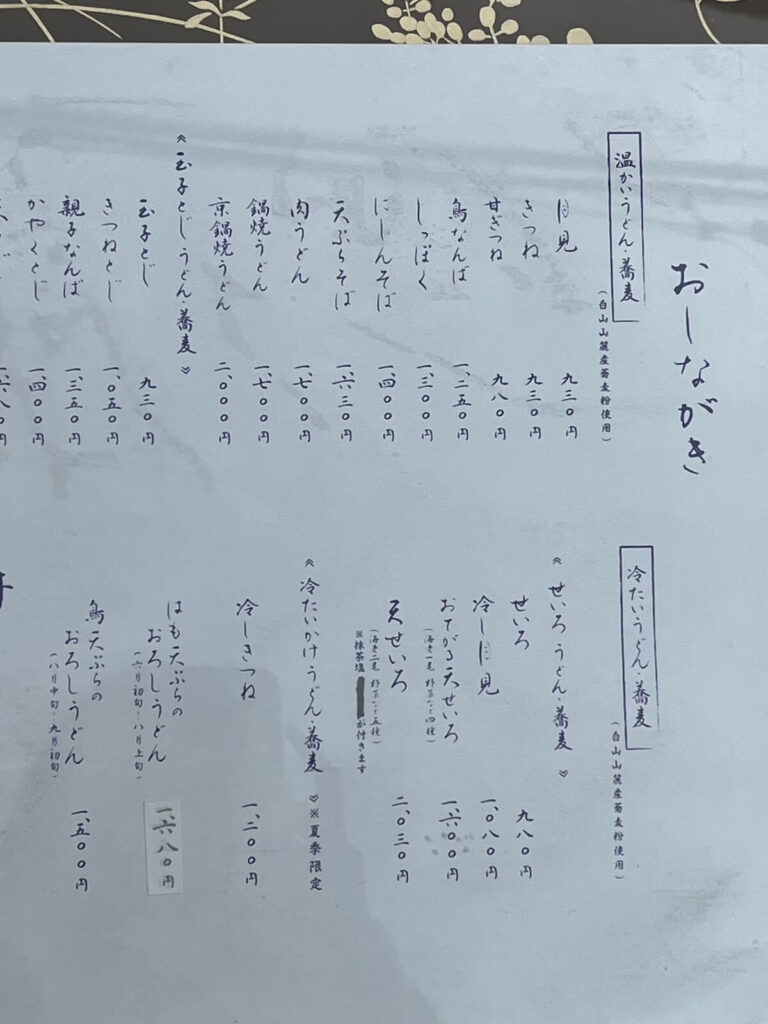 おしながき
温かいうどん・蕎麦
(白山山麓産蕎麦粉使用)
月見 九三〇円
きつね 九三〇円
甘ぎつね 九八〇円
鳥なんば 一、二五〇円
しっぽく 一、三〇〇円
にしんそば 一、四〇〇円
天ぷらそば 一、六三〇円
肉うどん 一、七〇〇円
鍋焼うどん 一、七〇〇円
京鍋焼うどん 二、〇〇〇円
《玉子とじうどん・蕎麦》
玉子とじ 九三〇円
きつねとじ 一、〇五〇円
親子なんば 一、三五〇円
かやくとじ 一、四〇〇円
一、六八〇円
冷たいうどん・蕎麦
(白山山麓産蕎麦粉使用)
《せいろうどん・蕎麦》
せいろ 九八〇円
冷し月見 一、〇八〇円
おてがる天せいろ 一、六〇〇円
(海老一尾 野菜など四種)
天せいろ 二、〇三〇円
(海老二尾 野菜など五種)
※抹茶塩 が付きます
《冷たいかけうどん・蕎麦》※夏季限定
冷しきつね 一、二〇〇円
はも天ぷらの
おろしうどん 一、六八〇円
(六月初旬〜八月上旬)
鳥天ぷらの
おろしうどん 一、五〇〇円
(八月中旬〜九月初旬)